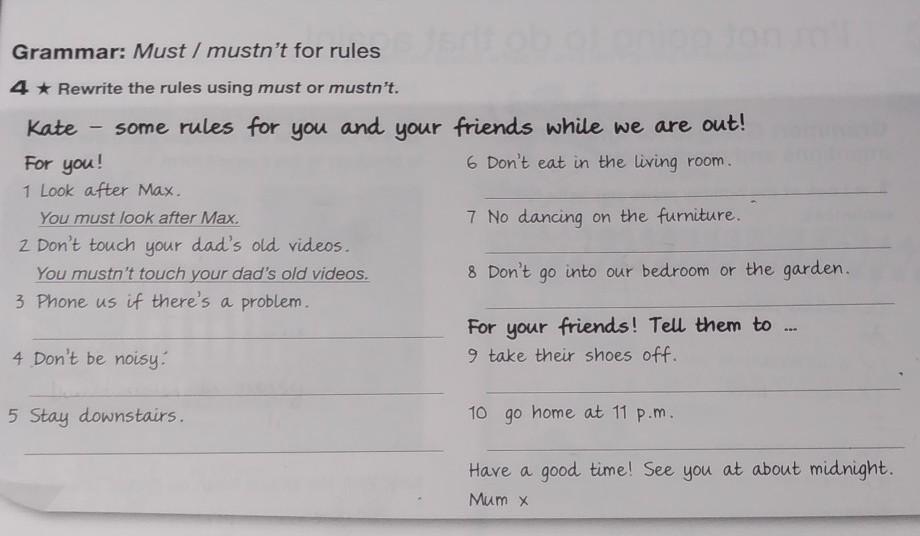 Grammar: Must / mustn't for rules
4 ★ Rewrite the rules using must or mustn't.
Kate – some rules for you and your friends while we are out!
For you!
1 Look after Max.
You must look after Max.
2 Don't touch your dad's old videos.
You mustn't touch your dad's old videos.
3 Phone us if there's a problem.
4 Don't be noisy.
5 Stay downstairs.
6 Don't eat in the living room.
7 No dancing on the furniture.
8 Don't go into our bedroom or the garden.
For your friends! Tell them to ...
9 take their shoes off.
10 go home at 11 p.m.
Have a good time! See you at about midnight.
Mum x